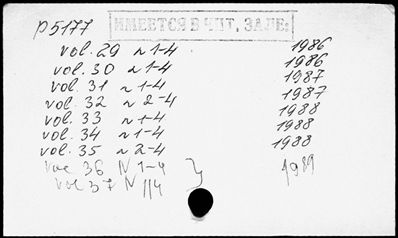 P5177 ИМЕЕТСЯ В ЧИТ. ЗАЛЕ:
vol. 29 N 1-4 1986
vol. 30 N 1-4 1986
vol. 31 N 1-4 1987
vol. 32 N 2-4 1987
vol. 33 N 1-4 1988
vol. 34 N 1-4 1988
vol. 35 N 2-4 1988
vol 36 N 1-4 1989
vol 37 N 1/4